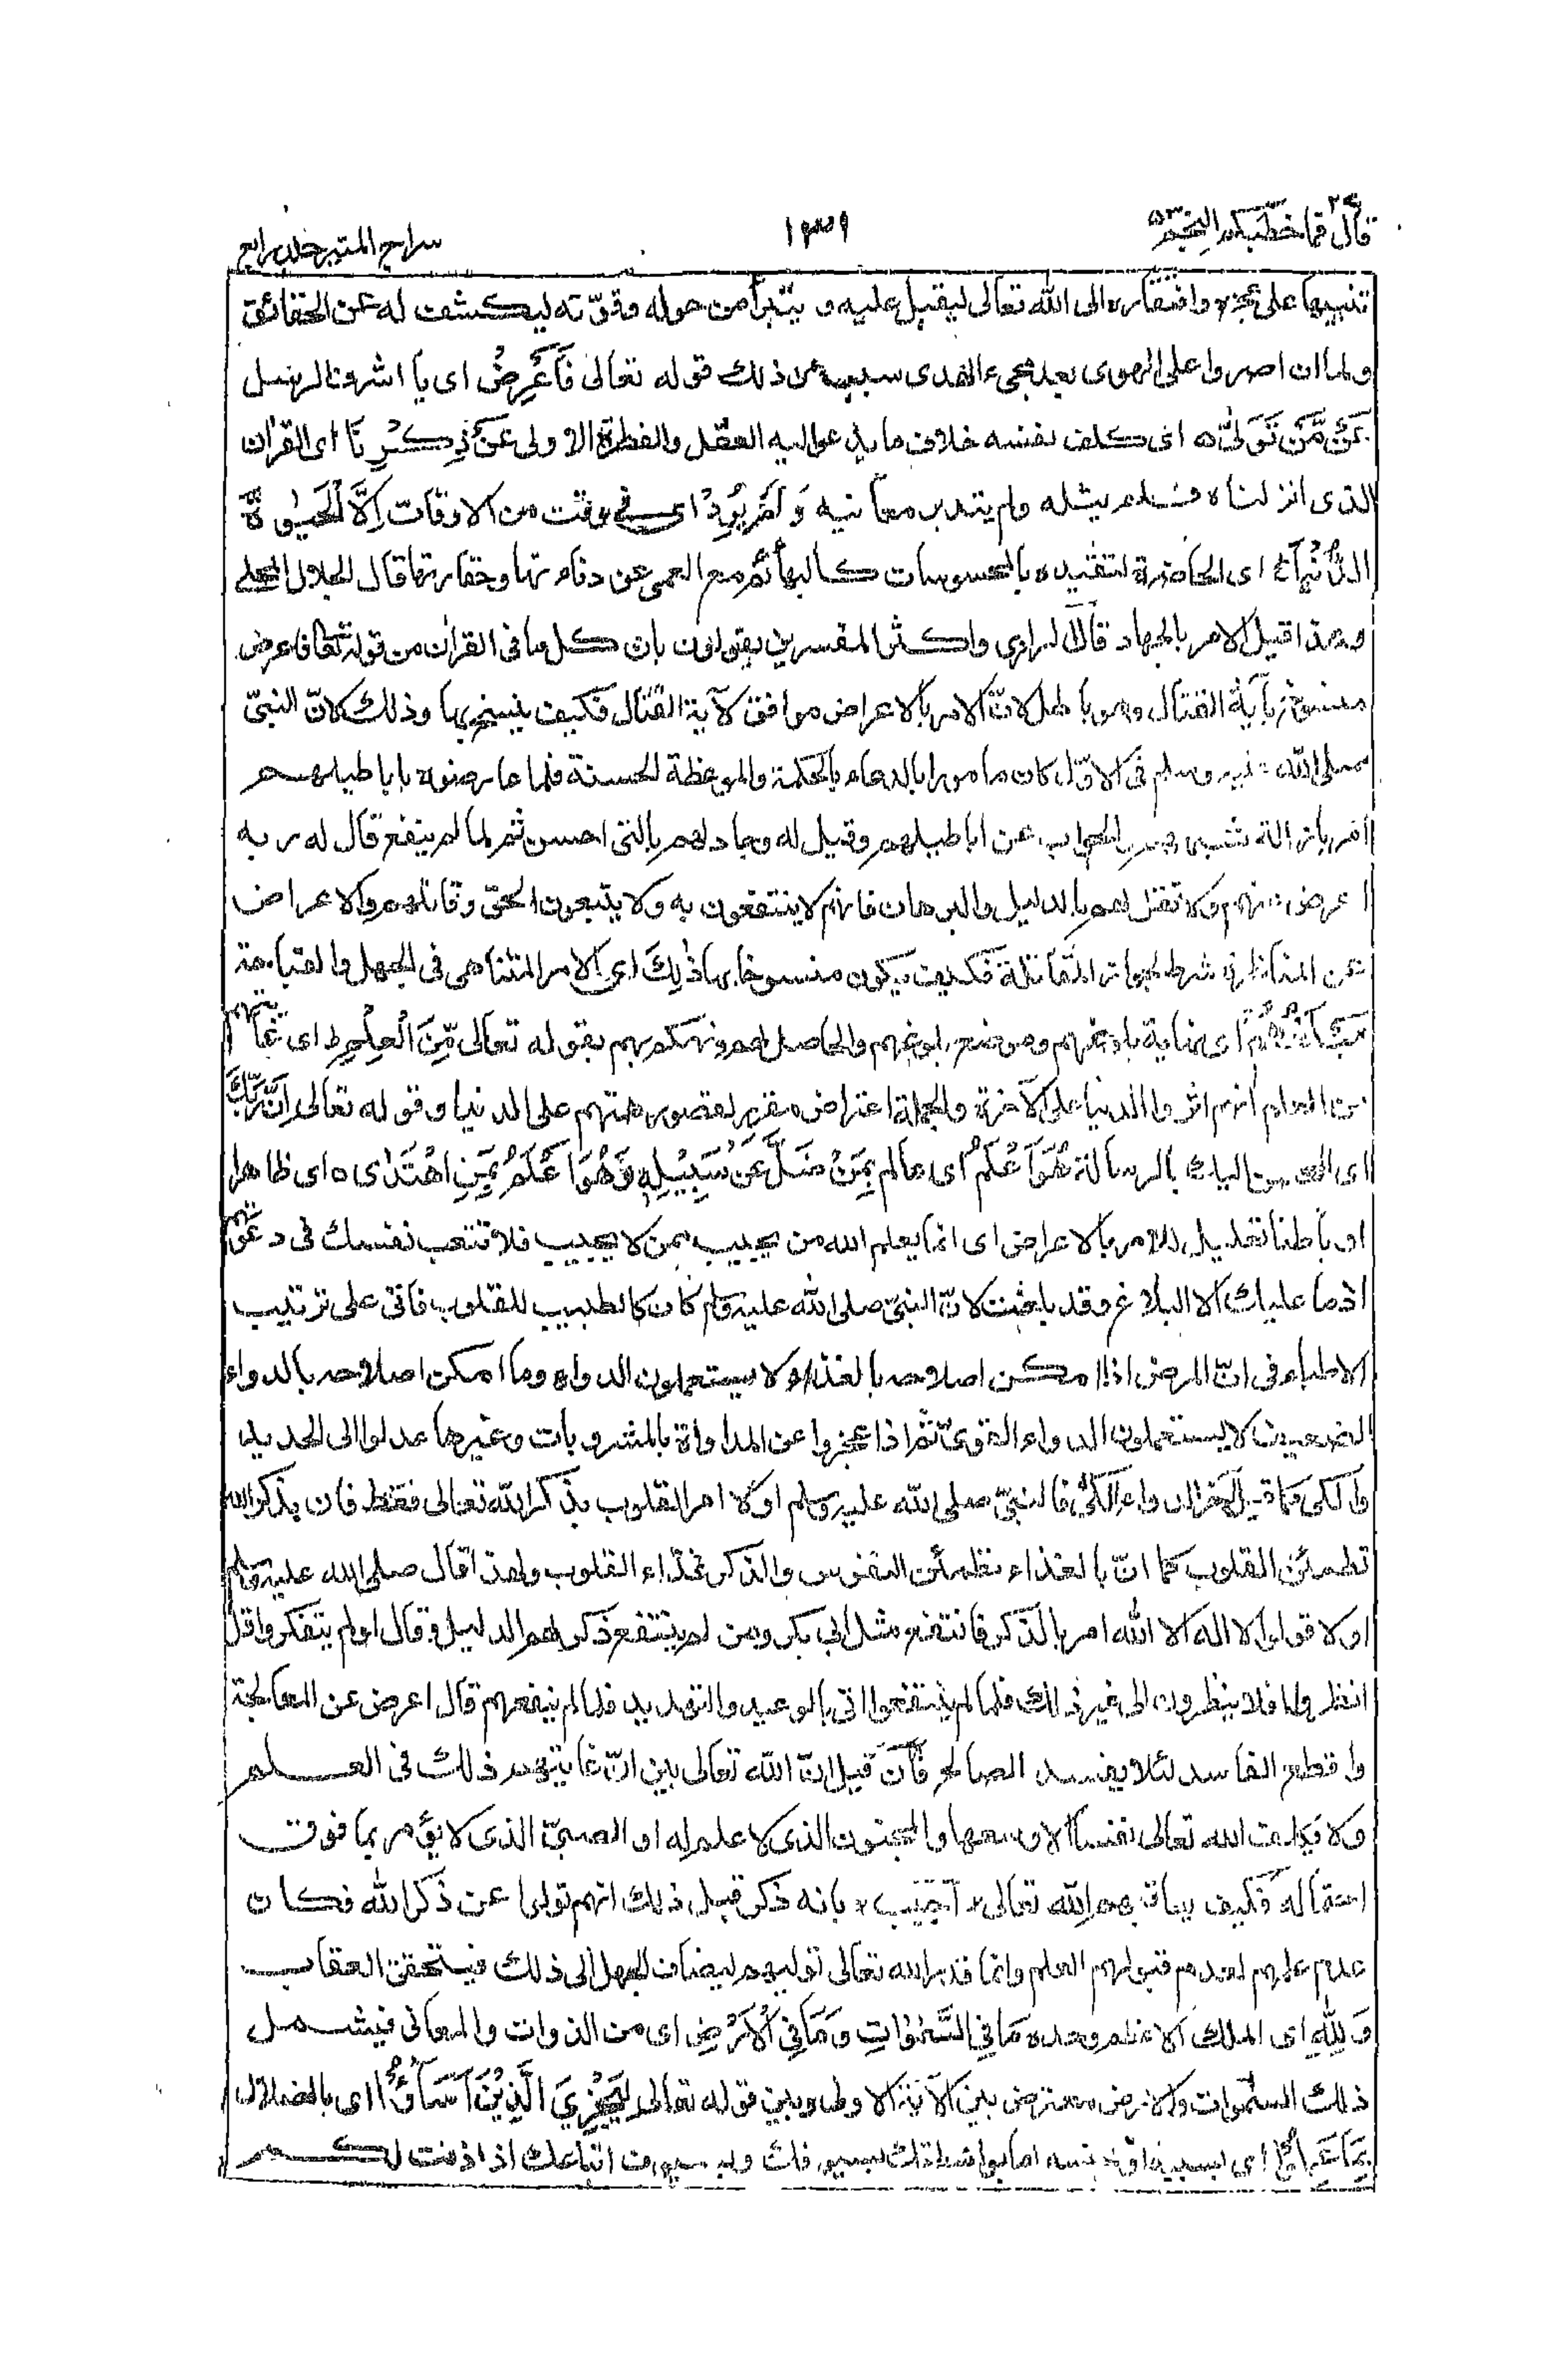 قال فما خطبكم ٢٧ النجم ٥٣
١٣١
سراج المنير جلد رابع
تنبيها على عجزه وافتقاره الى الله تعالى ليقبل عليه و يتبرأ من حوله وقوّته ليكشف له عن الحقائق
ولما ان اصروا على الهوى بعد مجىء الهدى سبب عن ذلك قوله تعالى فَأَعْرِضْ اى يا اشرف الرسل
عَنْ مَّنْ تَوَلّٰى ه اى كلف نفسه خلاف ما يدعو اليه العقل والفطرة الاولى عَنْ ذِكْرِنَا اى القران
الذى انزلناه فلم يثله ولم يتدبر معانيه وَلَمْ يُرِدْ اى فى وقت من الاوقات اِلَّا الْحَيٰوةَ
الدُّنْيَا اى الحاضرة لتقيده بالمحسوسات كالبهائم مع العمى عن دناءتها وحقارتها قال الجلال المحلى
وهذا قبل الامر بالجهاد قال الرازى واكثر المفسرين يقولون بان كل ما فى القران من قوله تعالى فاعرض
منسوخ بآية القتال وهو باطل لانّ الامر بالاعراض موافق لآية القتال فكيف ينسخ بها وذلك لانّ النبىّ
صلى الله عليه وسلم فى الاوّل كان مامورا بالدعاء بالحكمة والموعظة الحسنة فلما عارضوه باباطيلهم
امر بازالة شبههم والجواب عن اباطيلهم وقيل له وجادلهم بالتى احسن ثم لما لم ينفع قال له ربه
اعرض عنهم ولا تقتل لهم بالدليل والبرهان فانهم لا ينتفعون به ولا يتبعون الحقّ وقاتلهم والاعراض
عن المناظرة شرط لجواز المقاتلة فكيف يكون منسوخا بها ذٰلِكَ اى الامر المتناهى فى الجهل والقباحة
مَبْلَغُهُمْ اى نهاية بلوغهم وموضع بلوغهم والحاصل لهم وتهكم بهم بقوله تعالى مِّنَ الْعِلْمِ ط اى غايتهم
من العلم انهم اثروا الدنيا على الآخرة والجملة اعتراض مقرر لقصور همتهم على الدنيا وقوله تعالى اِنَّ رَبَّكَ
اى المحسن اليك بالرسالة هُوَ اَعْلَمُ اى عالم بِمَنْ ضَلَّ عَنْ سَبِيْلِهٖ وَهُوَ اَعْلَمُ بِمَنِ اهْتَدٰى ه اى ظاهرا
او باطنا تعليل للامر بالاعراض اى انما يعلم الله من يجيب ممن لا يجيب فلا تتعب نفسك فى دعوتهم
اذ ما عليك الا البلاغ وقد بلغت لانّ النبىّ صلى الله عليه وسلم كان كالطبيب للقلوب فاتى على ترتيب
الاطباء فى انّ المرض اذا امكن اصلاحه بالغذاء لا يستعملون الدواء وما امكن اصلاحه بالدواء
الضعيف لا يستعملون الدواء القوىّ ثم اذا عجزوا عن المداواة بالمشروبات وغيرها عدلوا الى الحديد
والكى كما قيل آخر الدواء الكىّ فالنبىّ صلى الله عليه وسلم اولا امر القلوب بذكر الله تعالى فقط فان بذكر الله
تطمئن القلوب كما انّ بالغذاء تطمئن النفوس والذكر غذاء القلوب ولهذا قال صلى الله عليه وسلم
اولا قولوا لا اله الا الله امر بالذكر فانتفع مثل ابى بكر ومن لم ينتفع ذكر لهم الدليل وقال اولم يتفكروا قل
انظروا افلا ينظرون الى غير ذلك فلما لم ينتفعوا اتى بالوعيد والتهديد فلما لم ينفعهم قال اعرض عن المعالجة
واقطع الفاسد لئلا يفسد الصالح فَاِن قيل انّ الله تعالى بين انّ غايتهم ذلك فى العلم
ولا يكلف الله تعالى نفسا الا وسعها والمجنون الذى لا علم له او الصبىّ الذى لا يؤمر بما فوق
احتماله فكيف يعاقبهم الله تعالى اُجِيْب بانه ذكر قبل ذلك انهم تولوا عن ذكر الله فكان
عدم علمهم لعدم قبولهم العلم وانما قدر الله تعالى توليهم ليضاف الجهل الى ذلك فيتحقق العقاب
وَلِلّٰهِ اى الملك الاعظم وحده مَا فِي السَّمٰوٰاتِ وَمَا فِي الْاَرْضِ اى من الذوات والمعانى فيشمل
ذلك السموات والارض معترض بين الآية الاولى وبين قوله تعالى لِيَجْزِيَ الَّذِيْنَ اَسَآؤُا اى بالضلال
بِمَا عَمِلُوْا اى بسببه او بجنسه اما بواسطتك بسيوفك وسيوف اتباعك اذا اذنت لكم